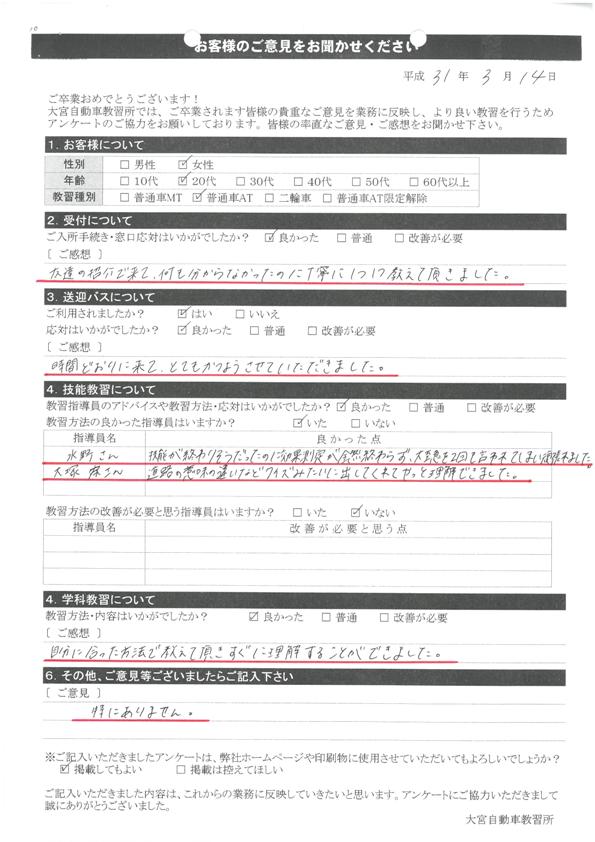 10
お客様のご意見をお聞かせください
平成 31 年 3 月 14 日
ご卒業おめでとうございます！
大宮自動車教習所では、ご卒業されます皆様の貴重なご意見を業務に反映し、より良い教習を行うため
アンケートのご協力をお願いしております。皆様の率直なご意見・ご感想をお聞かせ下さい。
1. お客様について
性別 □ 男性 ☑ 女性
年齢 □ 10代 ☑ 20代 □ 30代 □ 40代 □ 50代 □ 60代以上
教習種別 □ 普通車MT ☑ 普通車AT □ 二輪車 □ 普通車AT限定解除
2. 受付について
ご入所手続き・窓口応対はいかがでしたか？ ☑ 良かった □ 普通 □ 改善が必要
〔 ご感想 〕
友達の紹介で来て、何も分からなかったのに丁寧に1つ1つ教えて頂きました。
3. 送迎バスについて
ご利用されましたか？ ☑ はい □ いいえ
応対はいかがでしたか？ ☑ 良かった □ 普通 □ 改善が必要
〔 ご感想 〕
時間どおりに来て、とてもかつようさせていただきました。
4. 技能教習について
教習指導員のアドバイスや教習方法・応対はいかがでしたか？ ☑ 良かった □ 普通 □ 改善が必要
教習方法の良かった指導員はいますか？ ☑ いた □ いない
指導員名 良かった点
水野さん 技能が終わりそうだったのに効果測定が全然終わらず、
大塚 さん 道路の意味の違いなどクイズみたいに出してくれてやっと理解できました。
教習方法の改善が必要と思う指導員はいますか？ □ いた ☑ いない
指導員名 改善が必要と思う点
4. 学科教習について
教習方法・内容はいかがでしたか？ ☑ 良かった □ 普通 □ 改善が必要
〔 ご感想 〕
自分に合った方法で教えて頂きすぐに理解することができました。
6. その他、ご意見等ございましたらご記入下さい
〔 ご意見 〕
特にありません。
※ご記入いただきましたアンケートは、弊社ホームページや印刷物に使用させていただいてもよろしいでしょうか？
☑ 掲載してもよい □ 掲載は控えてほしい
ご記入いただきました内容は、これからの業務に反映していきたいと思います。アンケートにご協力いただきまして
誠にありがとうございました。
大宮自動車教習所